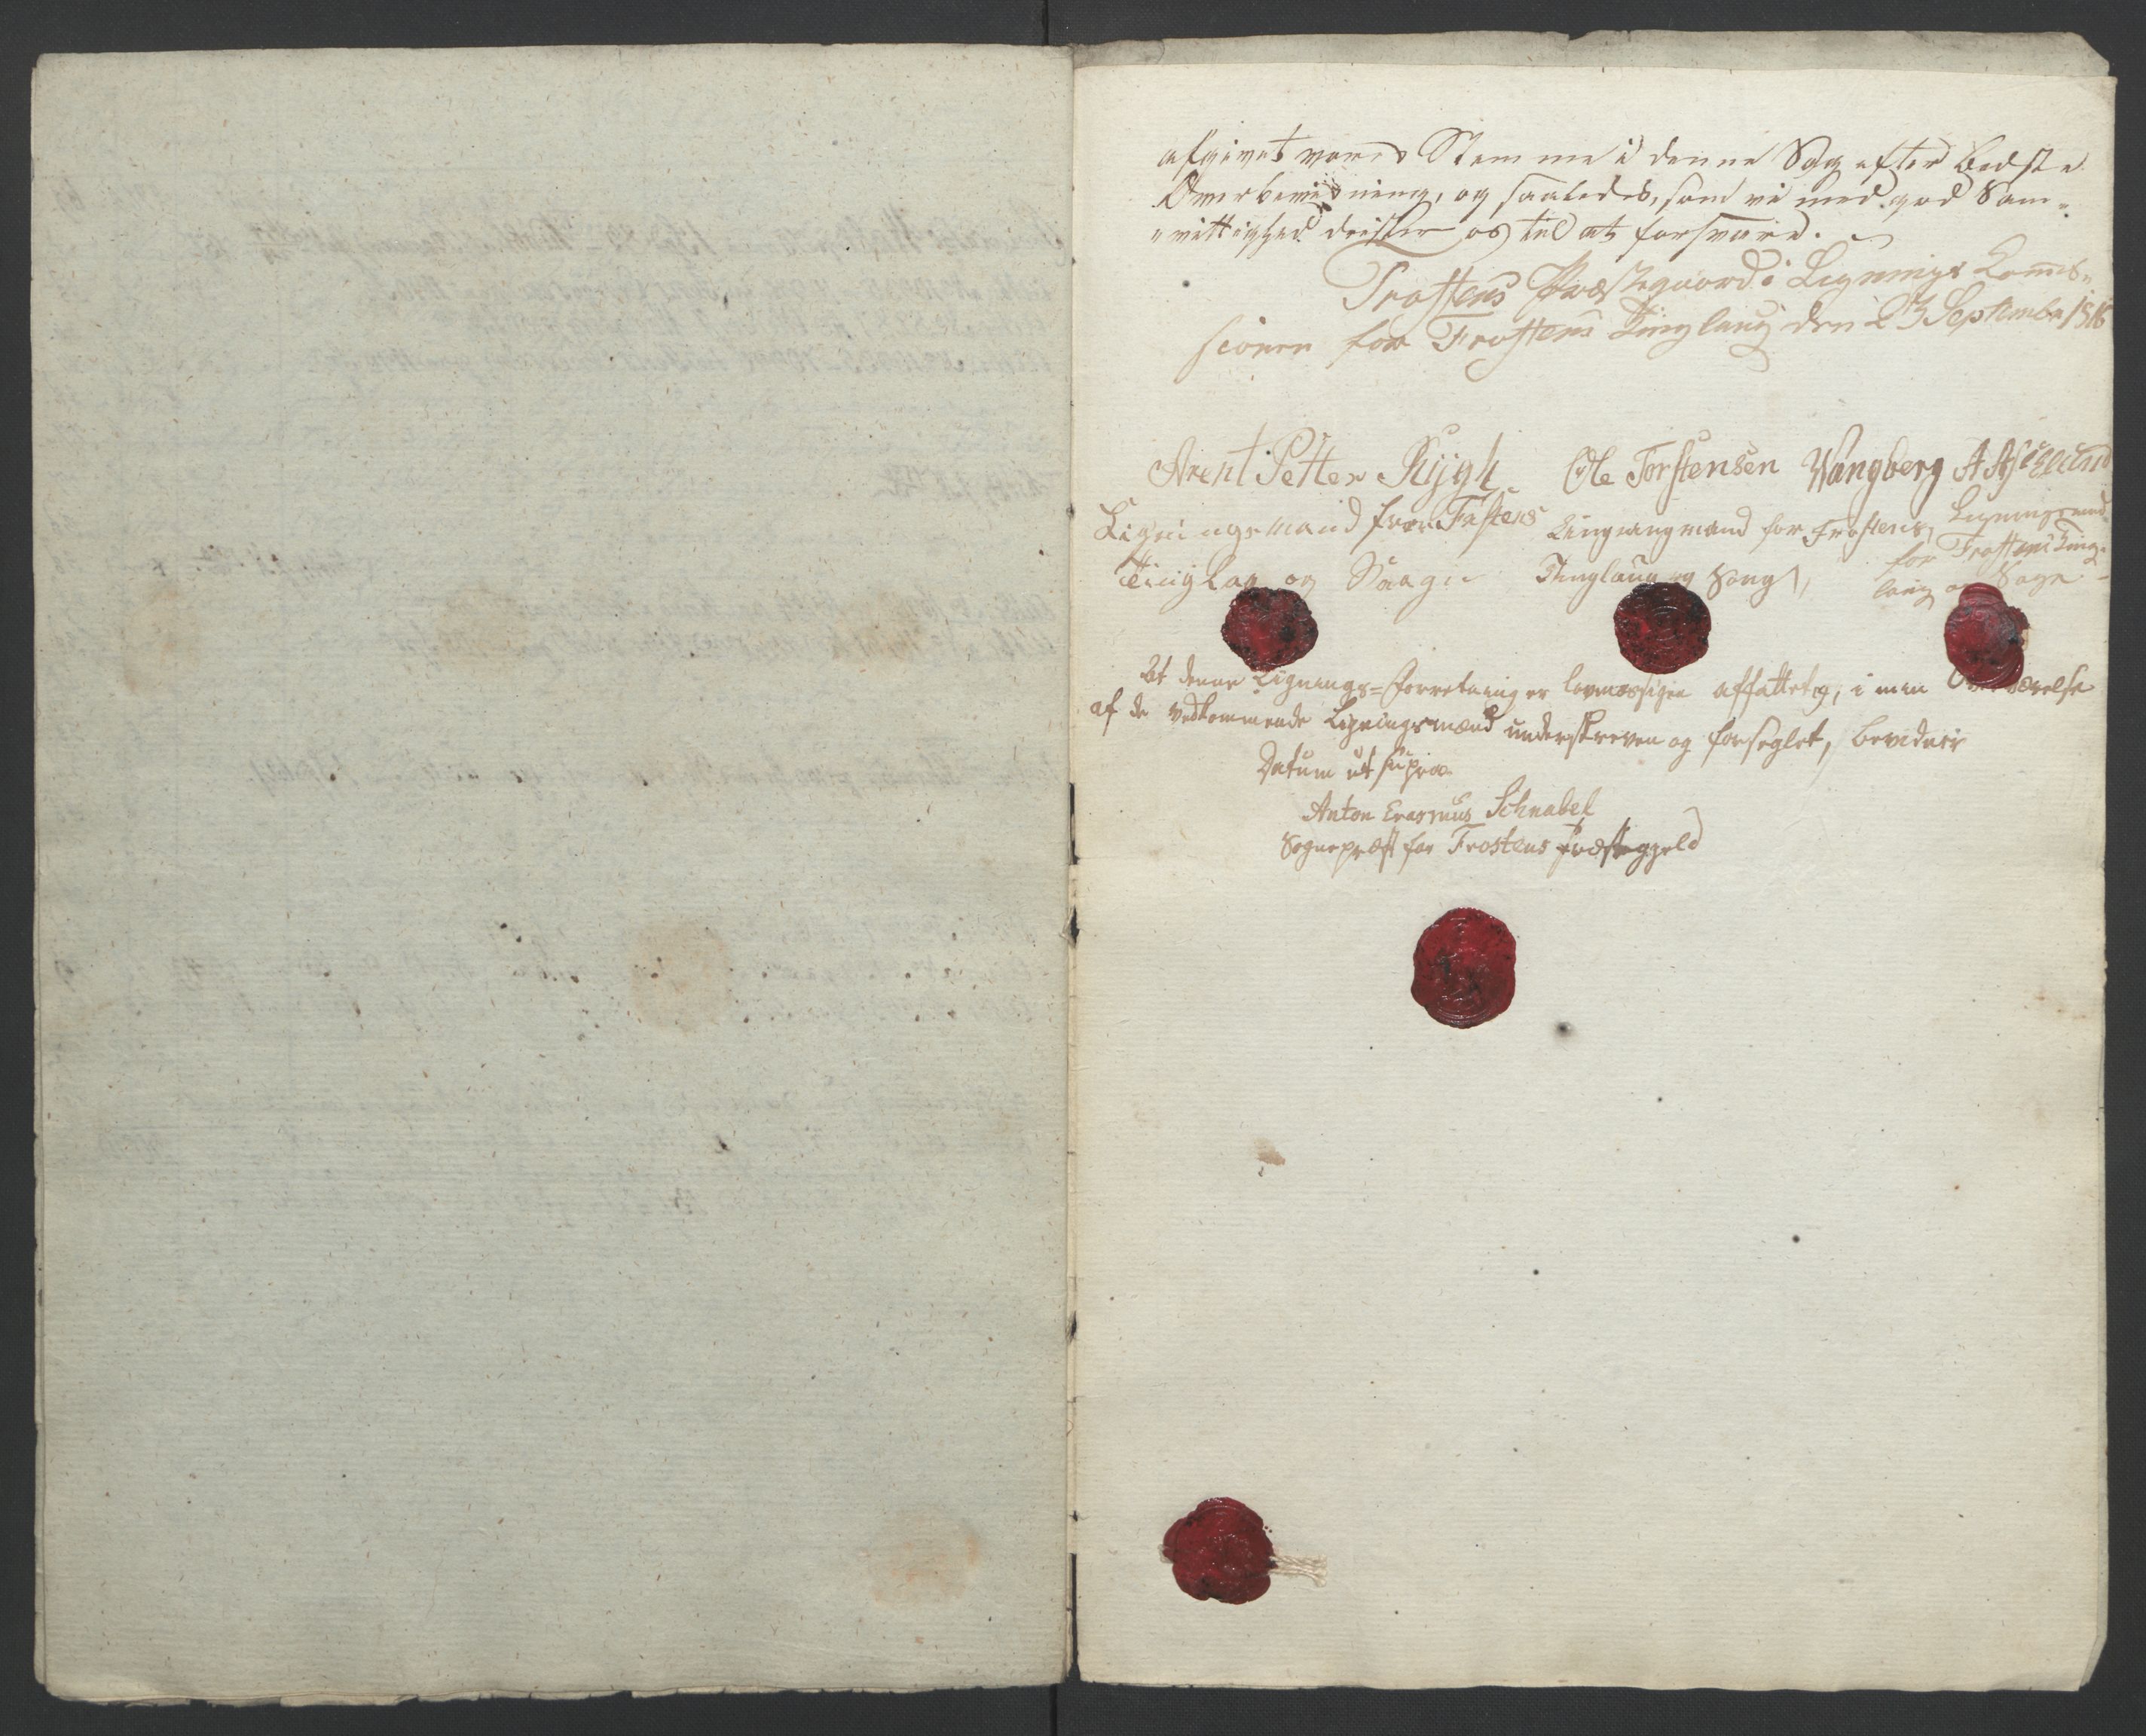 afgivet vores Stemme i denne Sag efter bedste
Overbeviisning, og saaledes, som vi med god Sam-
"vittighed drister os til at forsvare.
Frostens Præstegaard i Lignings Commis-
sionen for Frostens Tinglaug den 23 September 1816
Arent Petter Rÿgh Ole Torstensen Wangberg
Ligningsmand for Frostens Ligningsmand for Frostens Ligningsmand
Tinglag og Saagn Thinglaug og Sogn, for Frostens Ting-
laug og Sogn
At denne Lignings-Forretning er lovmæssigen affattet og, i min Overværelse
af de vedkommende Ligningsmænd underskreven og forseglet, bevidner
Datum ut supra
Anton Erasmus Schnabel
Sognepræst for Frostens Præstegjeld